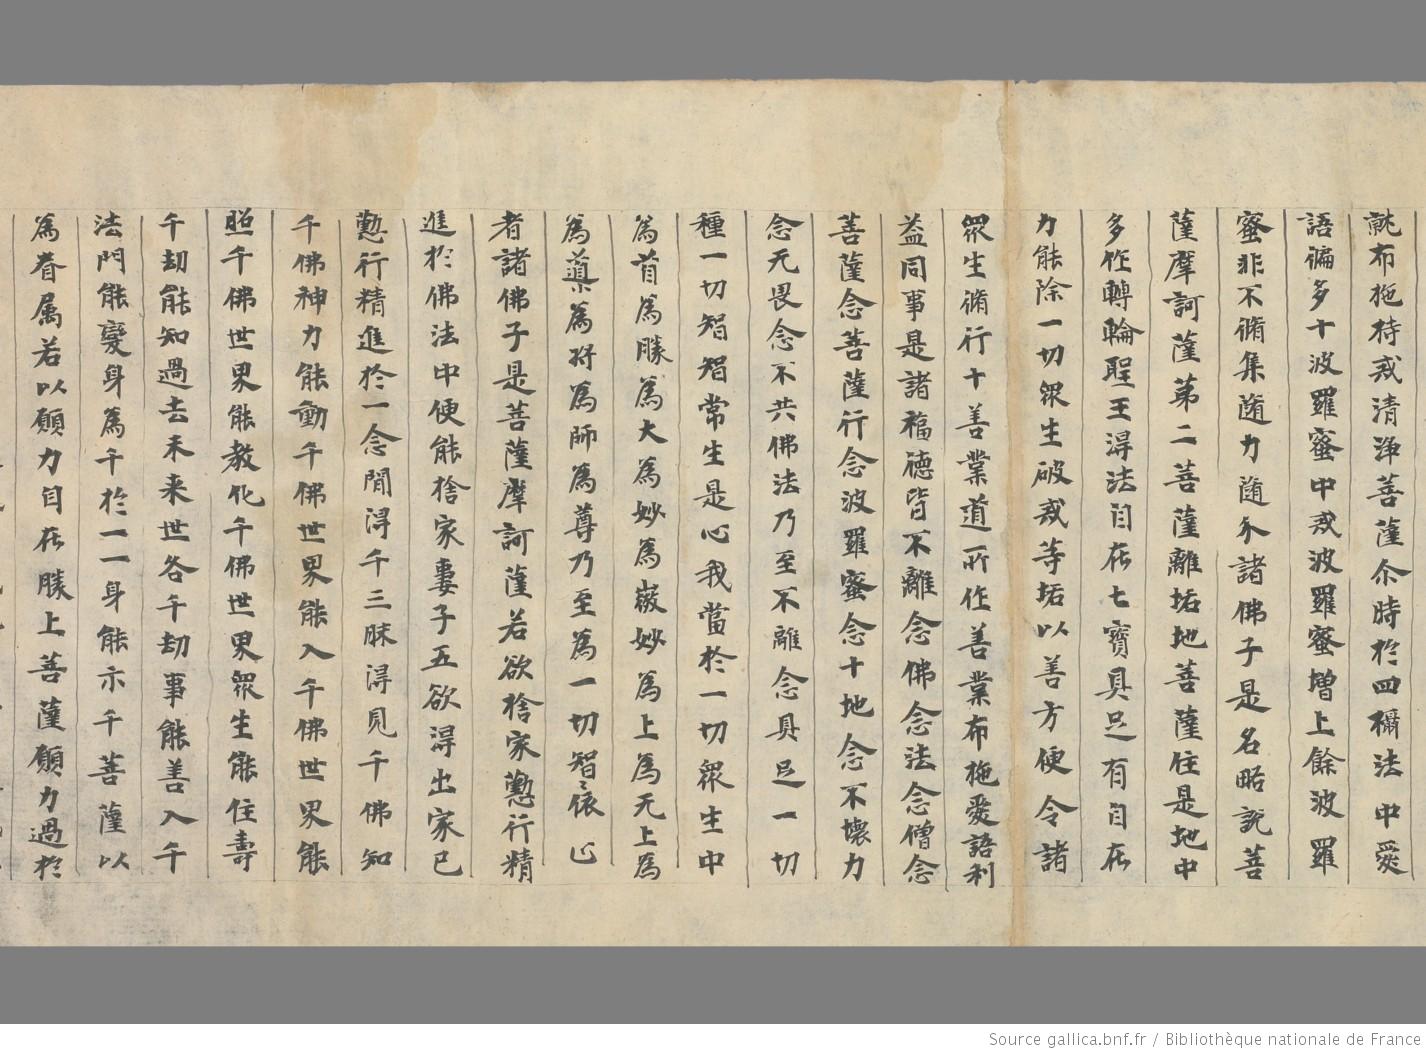 就布施持戒清浄菩薩尒時於四攝法中愛
語偏多十波羅蜜中戒波羅蜜增上餘波羅
蜜非不脩集随力随分諸佛子是名略說菩
薩摩訶薩第二菩薩離垢地菩薩住是地中
多作轉輪聖王淂法自在七寶具足有自在
力能除一切眾生破戒等垢以善方便令諸
眾生脩行十善業道所作善業布施愛語利
益同事是諸福徳皆不離念佛念法念僧念
菩薩念菩薩行念波羅蜜念十地念不壞力
念无畏念不共佛法乃至不離念具足一切
種一切智智常生是心我當於一切眾生中
為首為勝為大為妙為微妙為上為无上為
為導為將為師為尊乃至為一切智〻依止
者諸佛子是菩薩摩訶薩若欲捨家懃行精
進於佛法中便能捨家妻子五欲淂出家已
懃行精進於一念閒淂千三昧淂見千佛知
千佛神力能動千佛世界能入千佛世界能
照千佛世界能教化千佛世界眾生能住壽
千劫能知過去未来世各千劫事能善入千
法門能變身為千於一一身能示千菩薩以
為眷属若以願力自在勝上菩薩願力過於
Source gallica.bnf.fr / Bibliothèque nationale de France